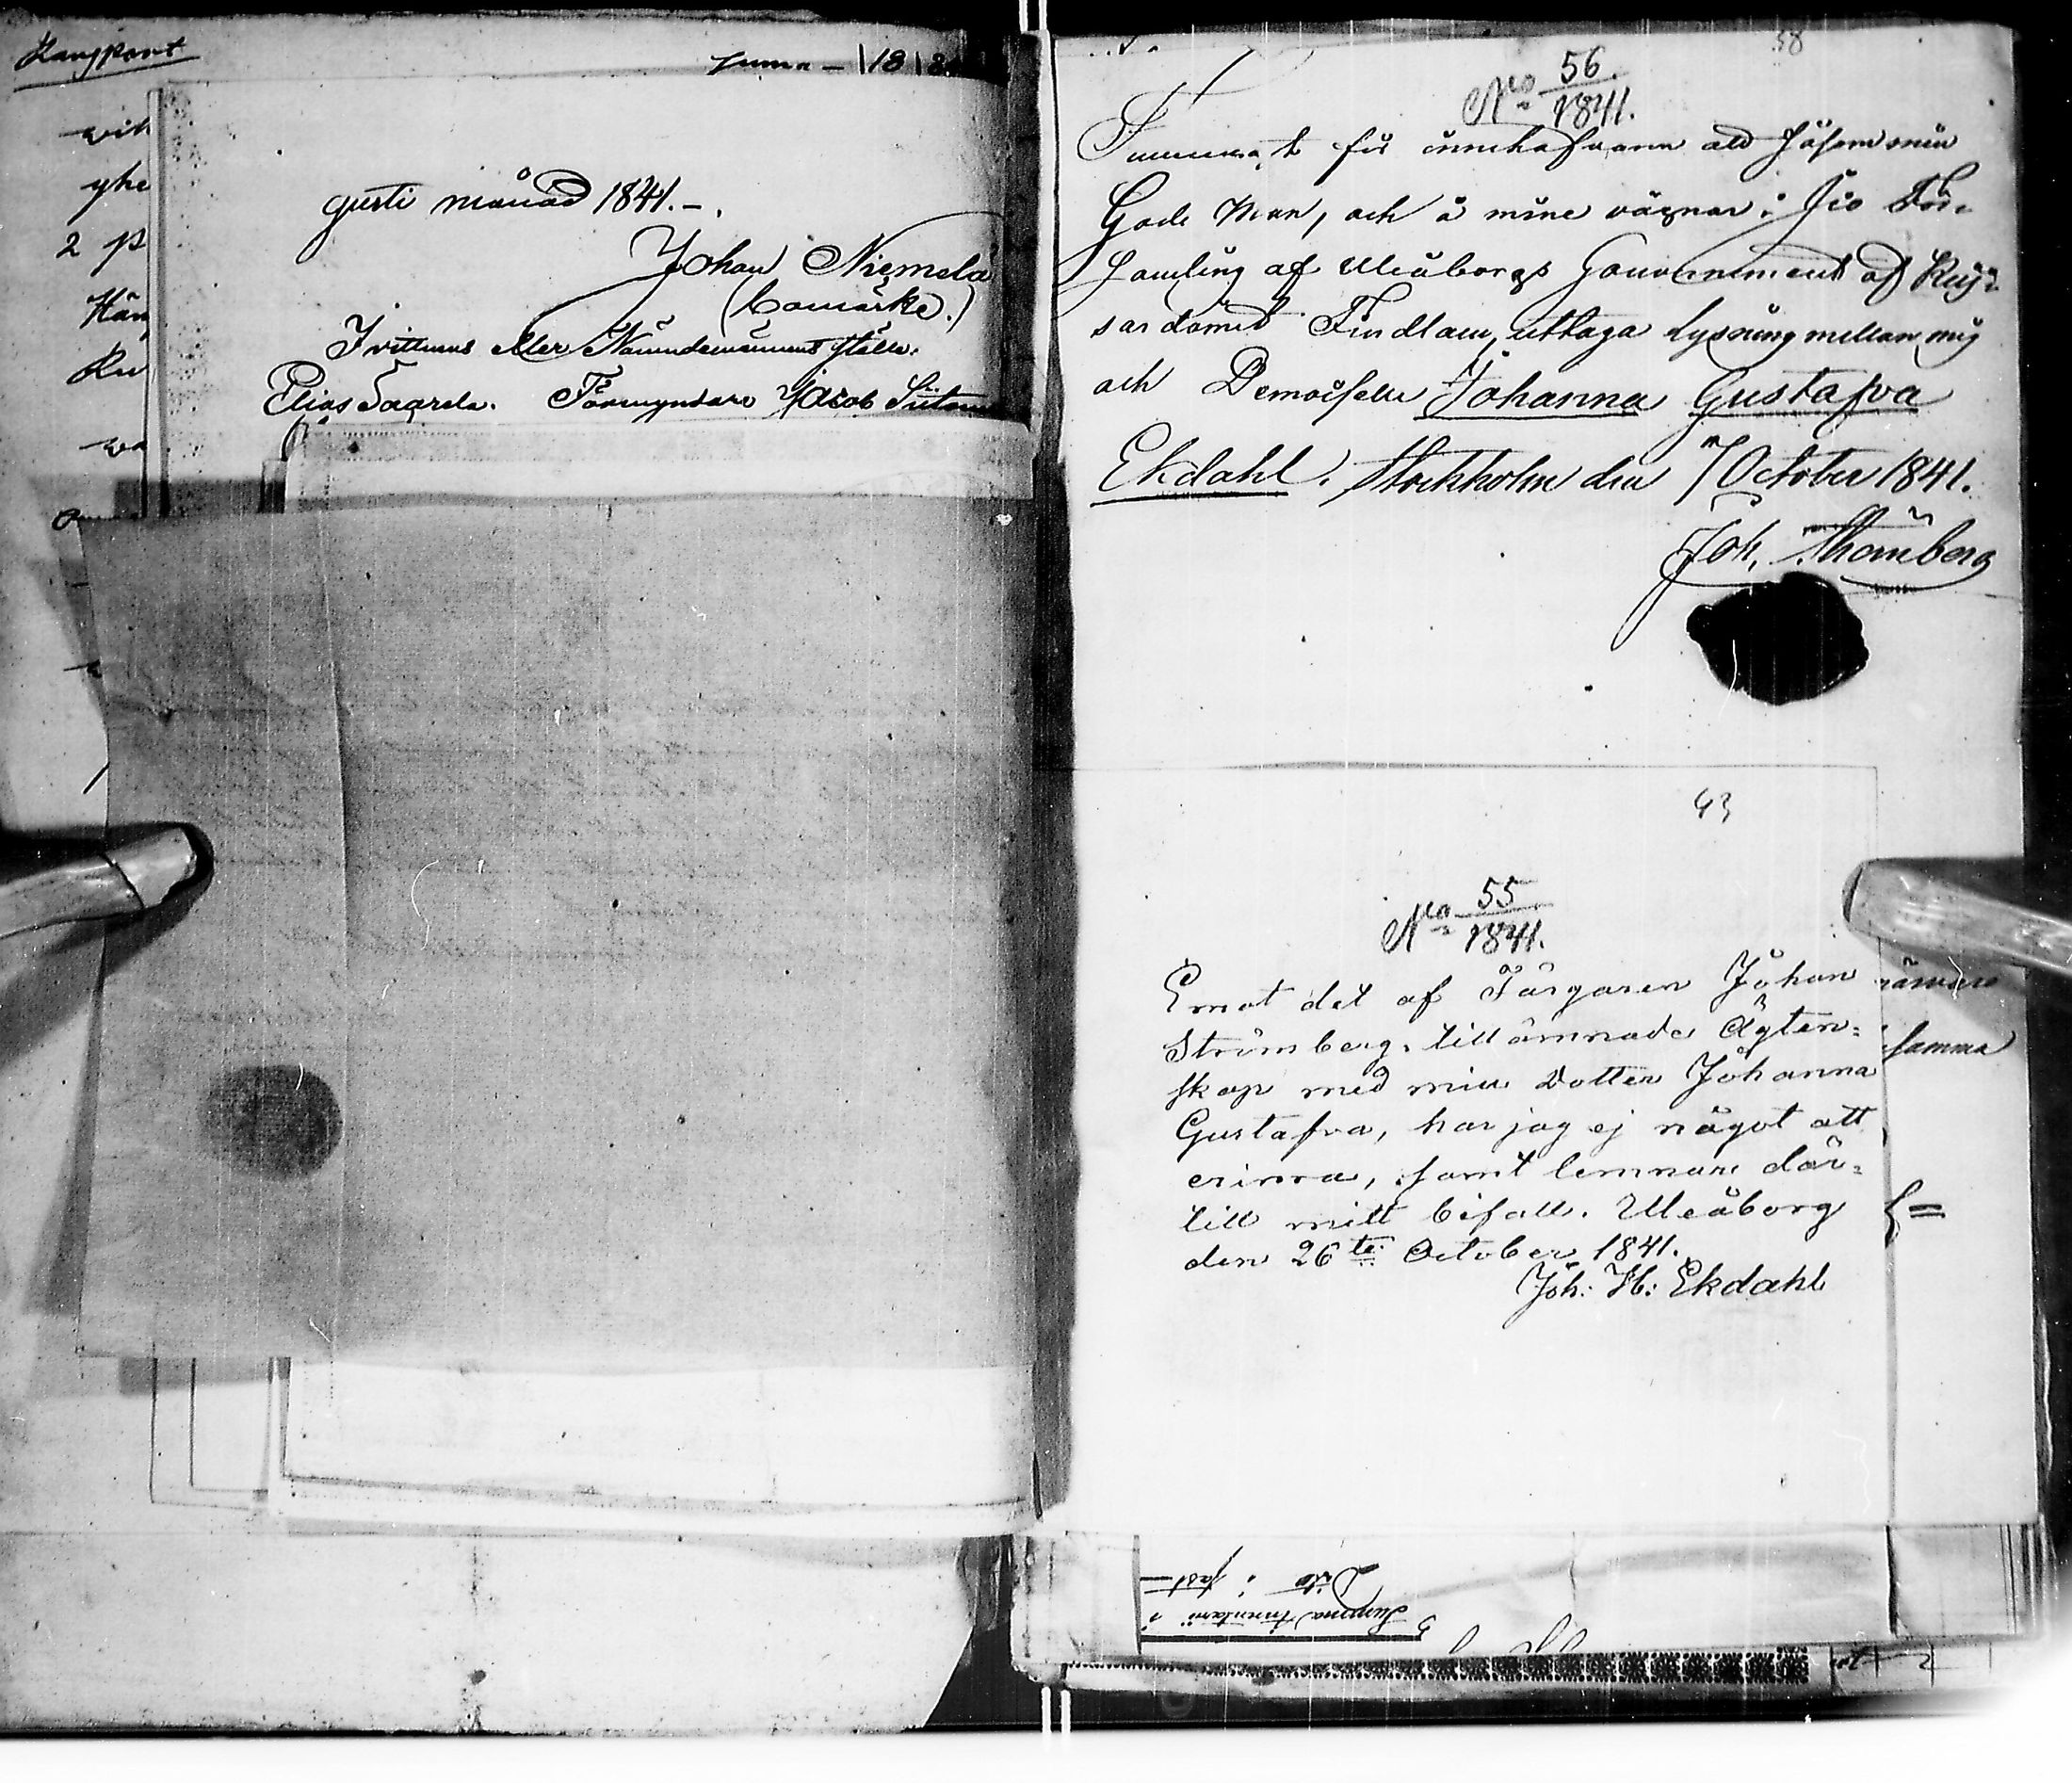 Transport
Summa — 18
wih
yhe
2 p
Hän
Ru
wa
gusti månad 1841.–.
Johan Niemelä
(bomärke.)
I vittnens eller Nämndemännens ställe.
Elias Saarela. Förmyndare Jacob
58
No 56
1841.
för innehafvaren att såsom min
Gode Man, och å mine vägnar i Jio För-
samling af Uleåborgs Gouvernement af Kej-
sardömet Findland, uttaga lysning mellan mig
och Demoiselle Johanna Gustafva
Ekdahl. Stockholm den 7 October 1841.
Joh. Strömberg
43
No 55
1841.
Emot det af Färgaren Johan
Strömberg, tillämnade Ägten=
skap med min Dotter Johanna
Gustafva, har jag ej något att
erinra, samt lemnar där=
till mitt bifall. Uleåborg
den 26te October 1841.
Joh: H: Ekdahl
samma
Summa Inventarii i
Dito i fast